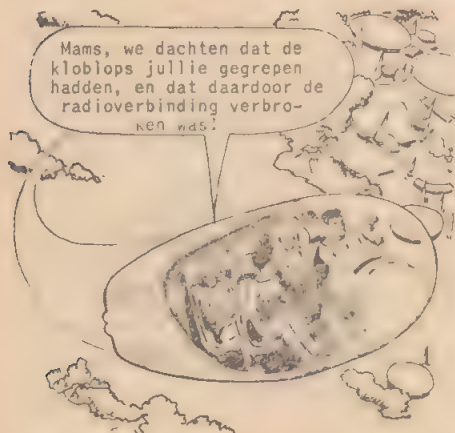 Mams, we dachten dat de
kloblops jullie gegrepen
hadden, en dat daardoor de
radioverbinding verbro-
ken was!